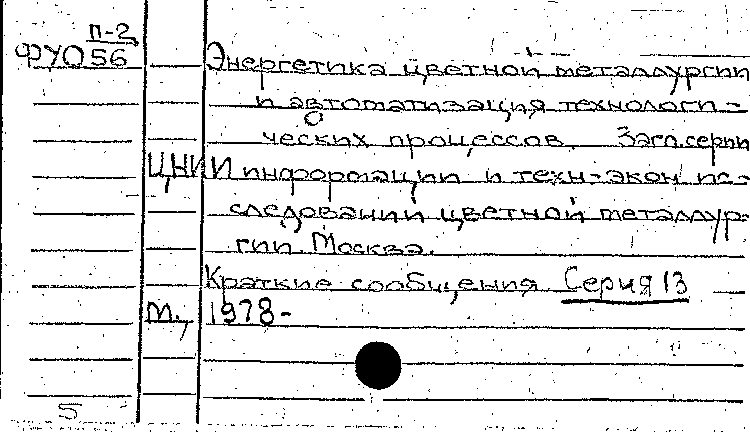 П-2
ФУО56
Энергетика цветной металлургии
и автоматизация технологи-
ческих процессов. Загл.серии
ЦНИИ информации и техн-экон ис-
следований цветной металлур-
гии. Москва.
Краткие сообщения Серия 13
М., 1978-
5